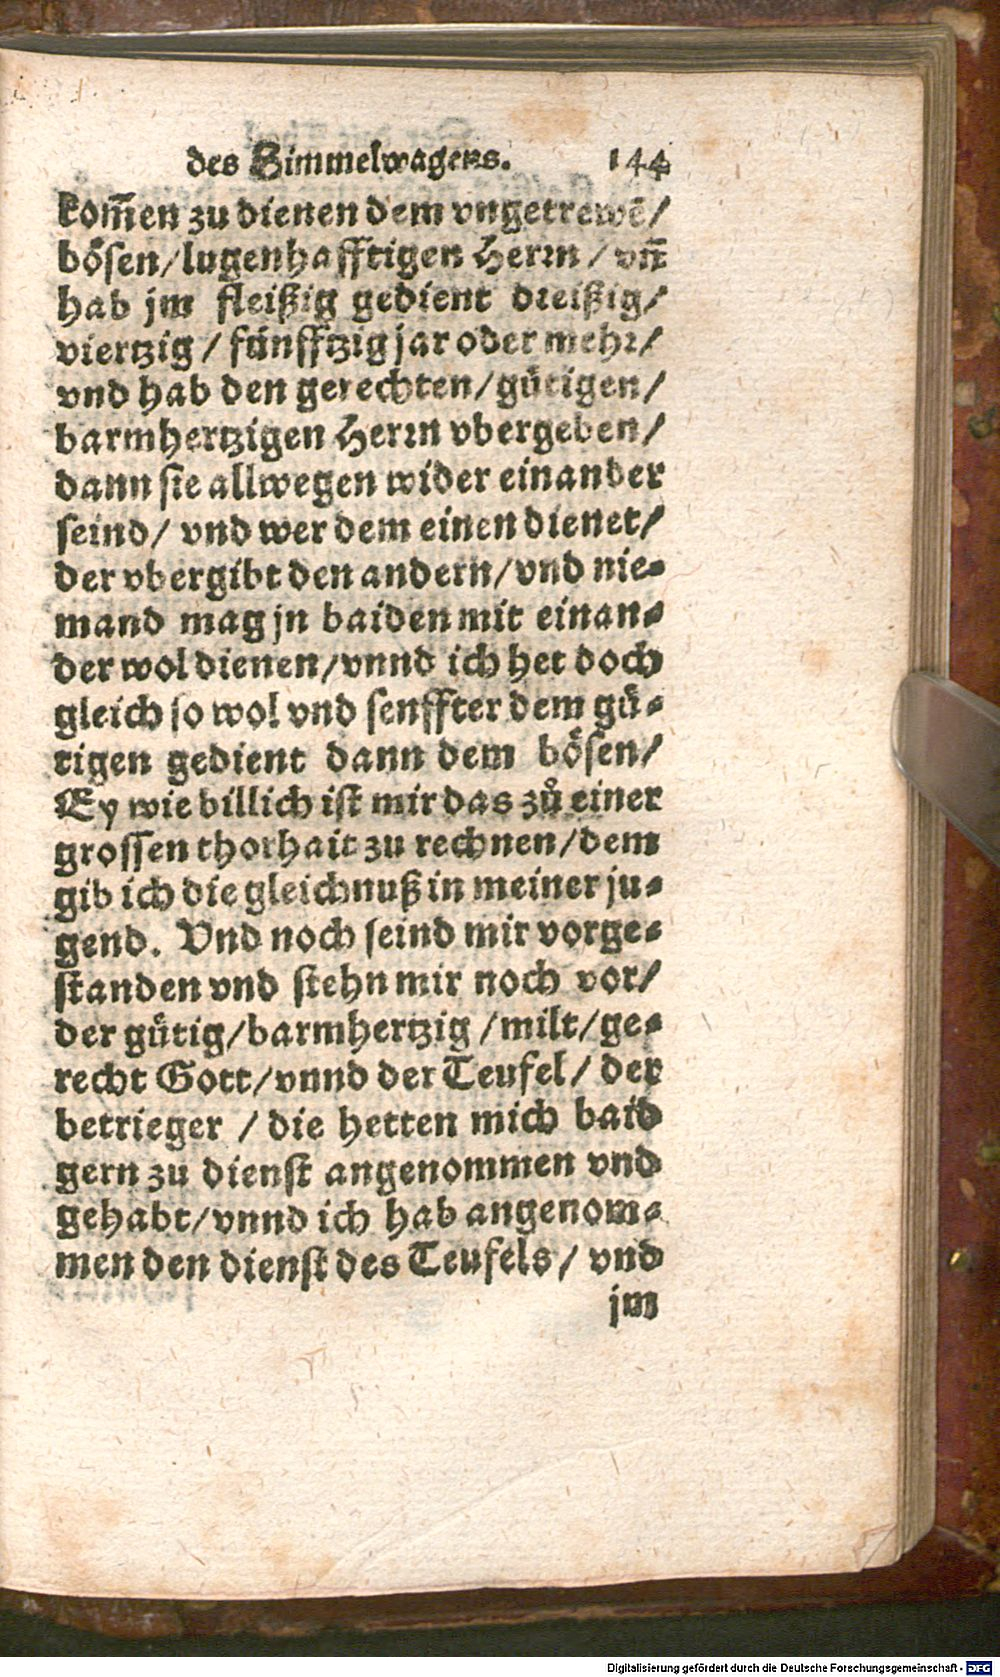 des Himmelwagens. 144
kom̃en zu dienen dem vngetrewẽ/
bösen/lugenhafftigen Herrn / vñ
hab jm fleißig gedient dreißig/
viertzig / fünfftzig jar oder mehr/
vnd hab den gerechten/gütigen/
barmhertzigen Herrn vbergeben/
dann sie allwegen wider einander
seind/ vnd wer dem einen dienet/
der vbergibt den andern/vnd nie-
mand mag jn baiden mit einan-
der wol dienen/vnnd ich het doch
gleich so wol vnd senffter dem gü-
tigen gedient dann dem bösen/
Ey wie billich ist mir das zů einer
grossen thorhait zu rechnen/dem
gib ich die gleichnuß in meiner ju-
gend. Vnd noch seind mir vorge-
standen vnd stehn mir noch vor/
der gütig/barmhertzig /milt/ge-
recht Gott/vnnd der Teufel/ der
betrieger / die hetten mich baid
gern zu dienst angenommen vnd
gehabt/vnnd ich hab angenom-
men den dienst des Teufels/ vnd
jm
Digitalisierung gefördert durch die Deutsche Forschungsgemeinschaft - DFG